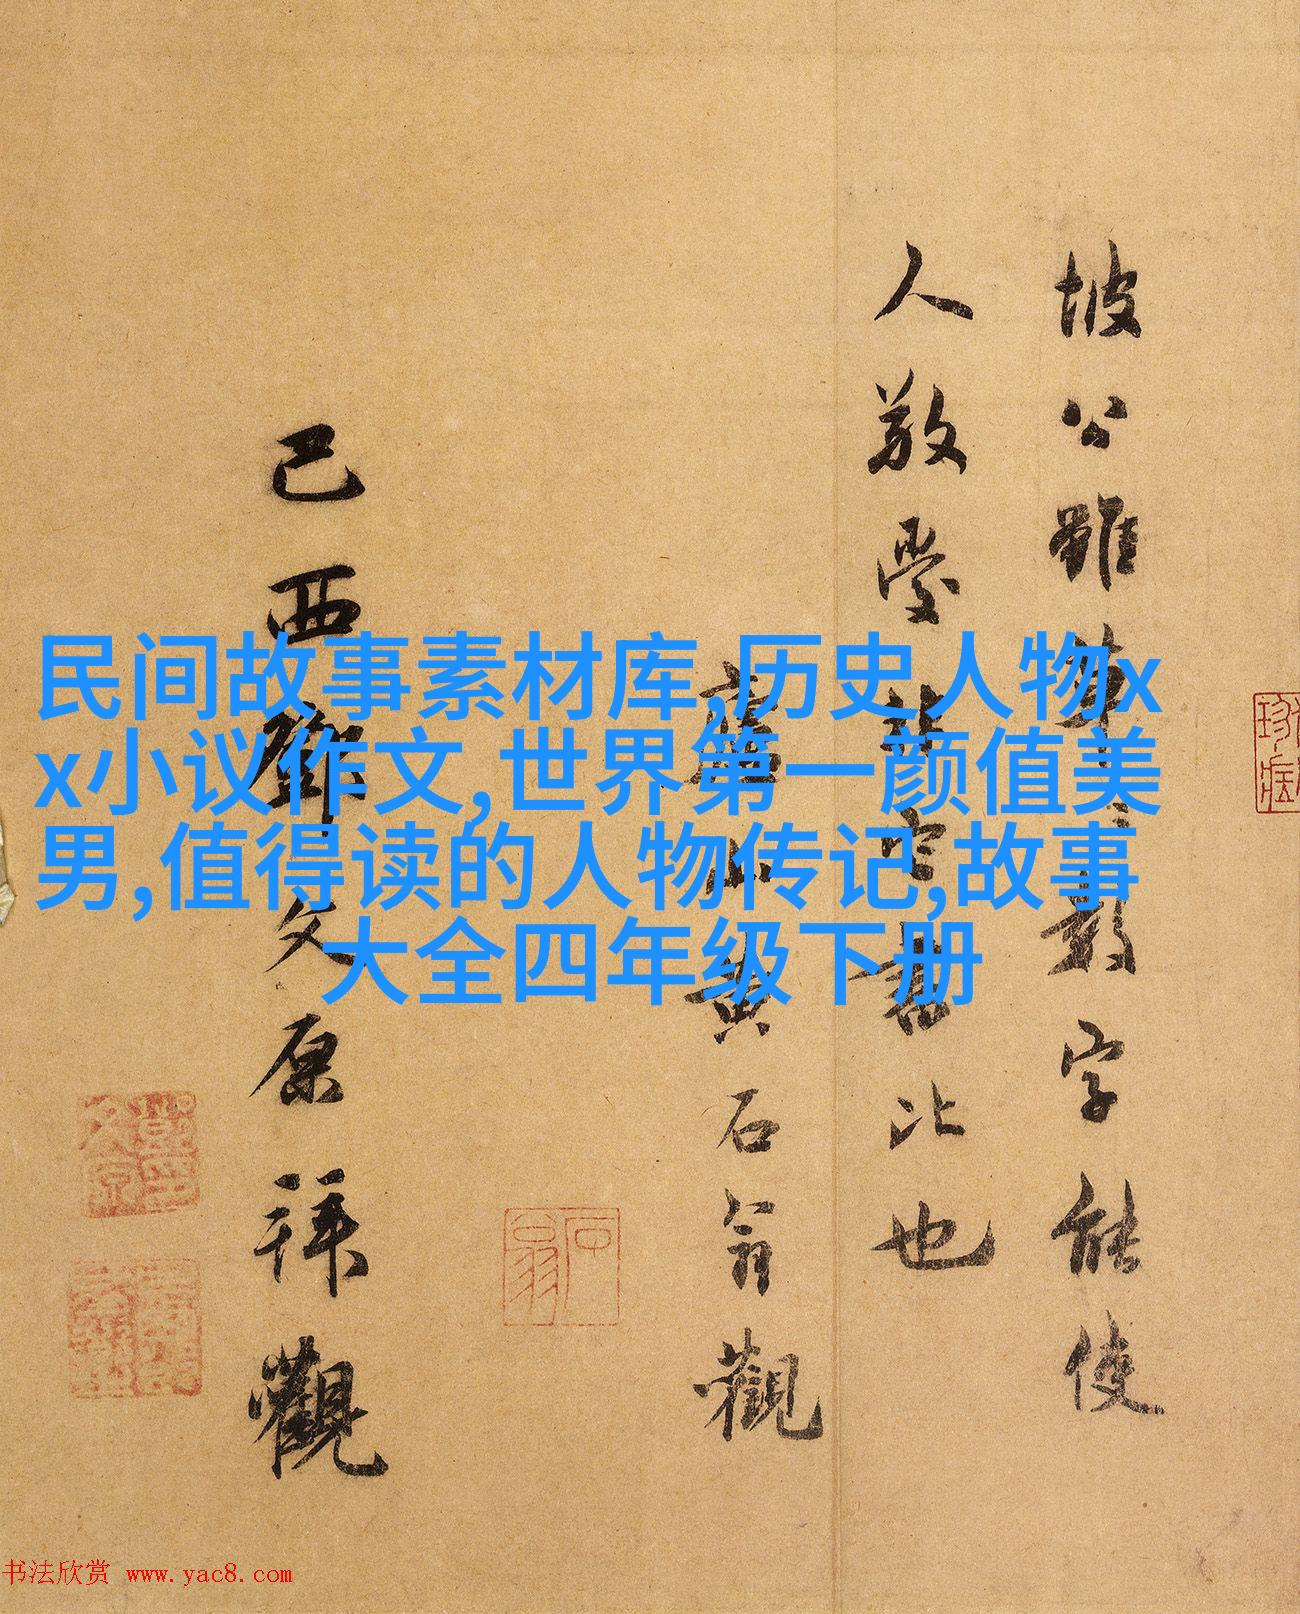 民间故事素材库,历史人物x
x小议作文,世界第一颜值美
男,值得读的人物传记,故事
大全四年级下册
坡公雖草草數字能使
人敬愛
書比也
黄石翁觀
己酉鄧文原拜觀
石翁
书法欣赏 www.yac8.com